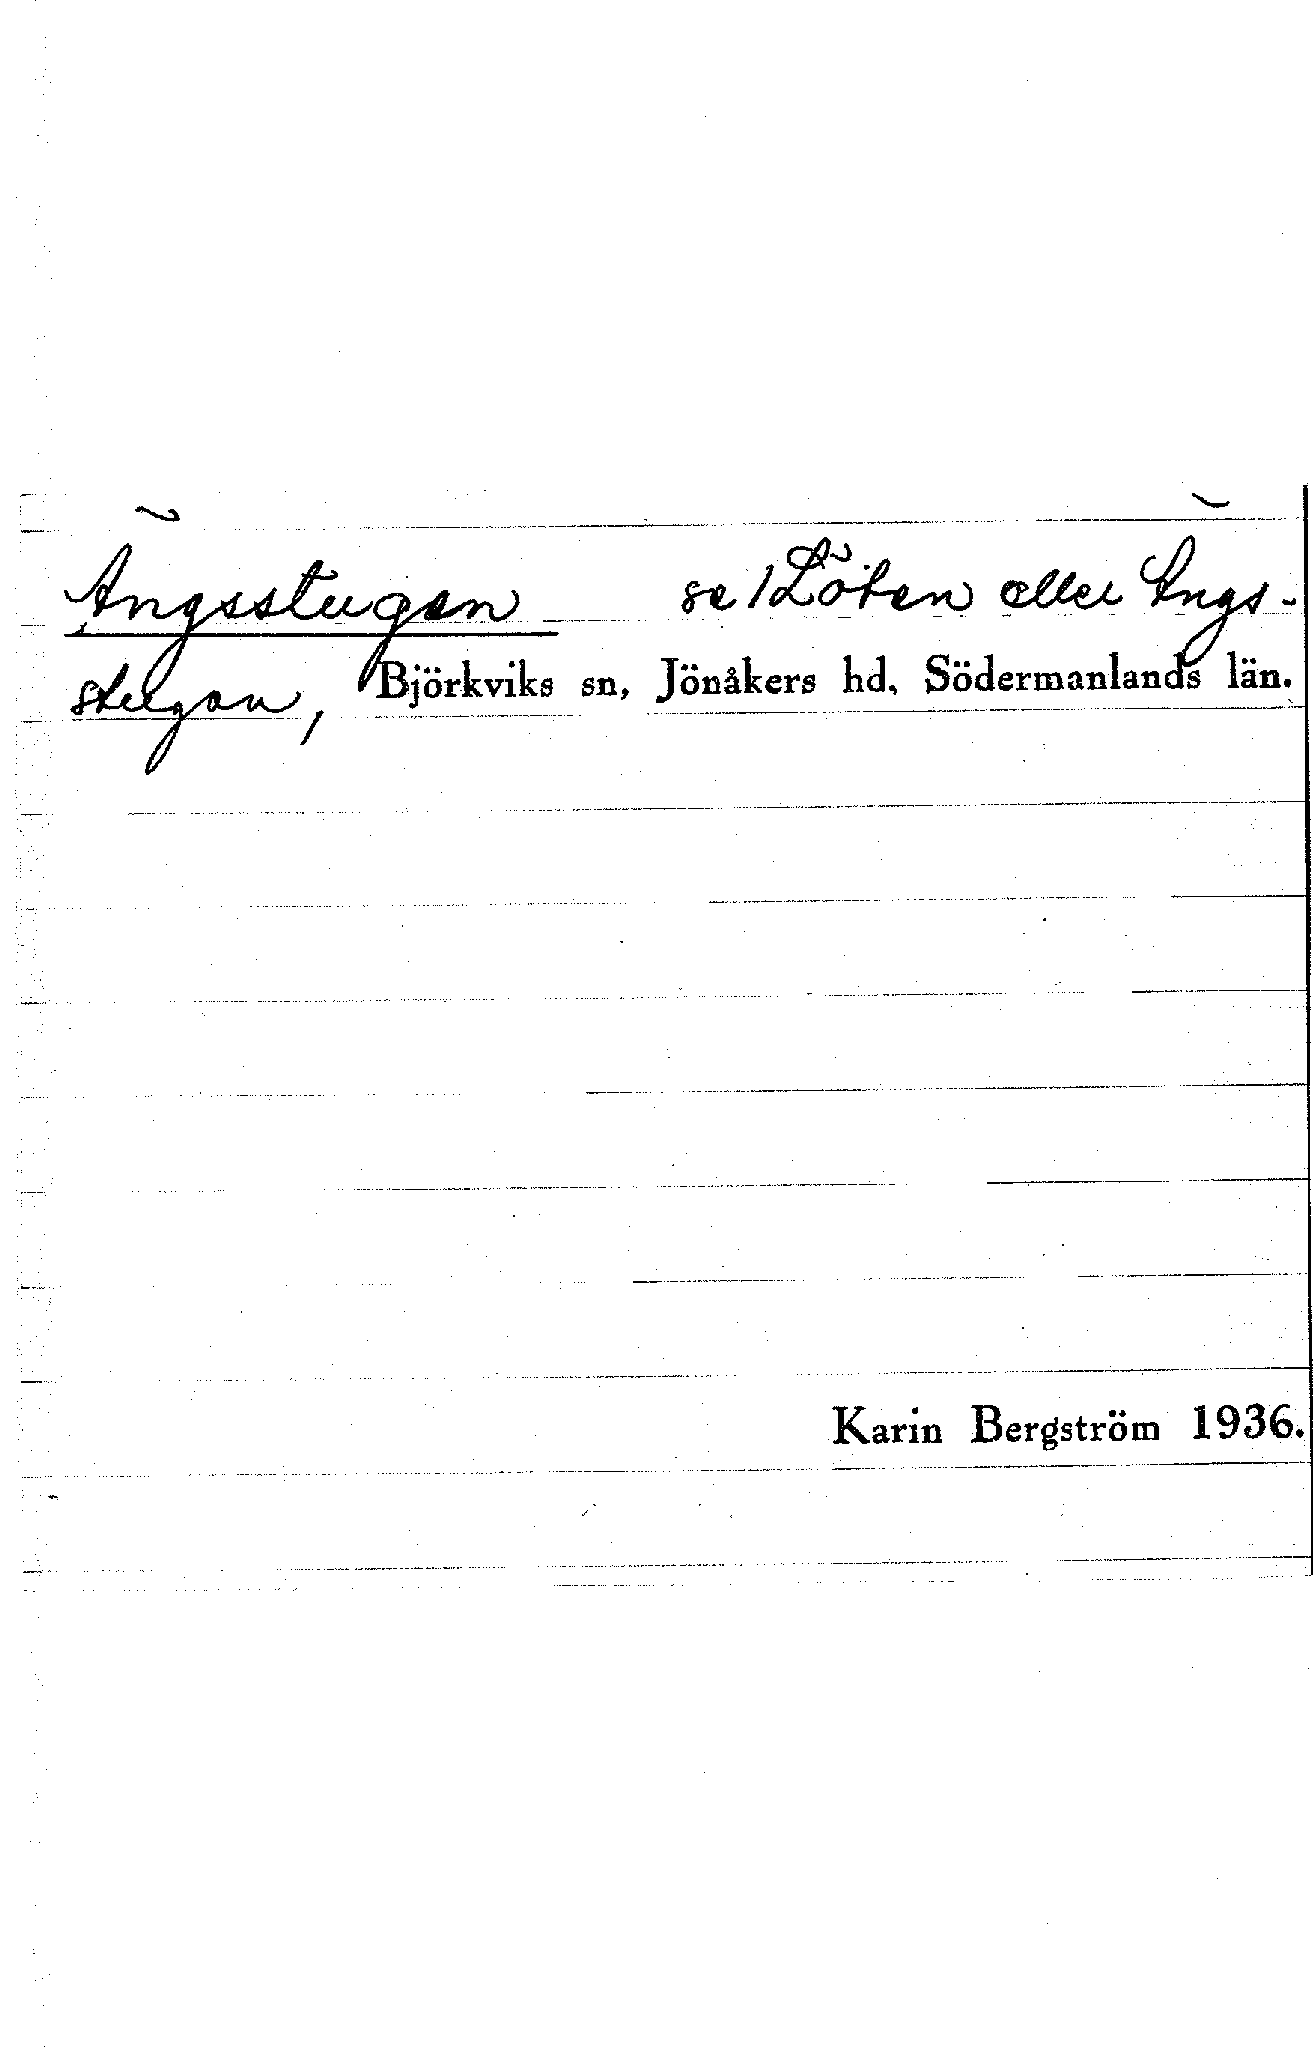 Ängsstugan se 1 Löten eller Ängs-
stugan, Björkviks sn, Jönåkers hd, Södermanlands län.
Karin Bergström 1936.